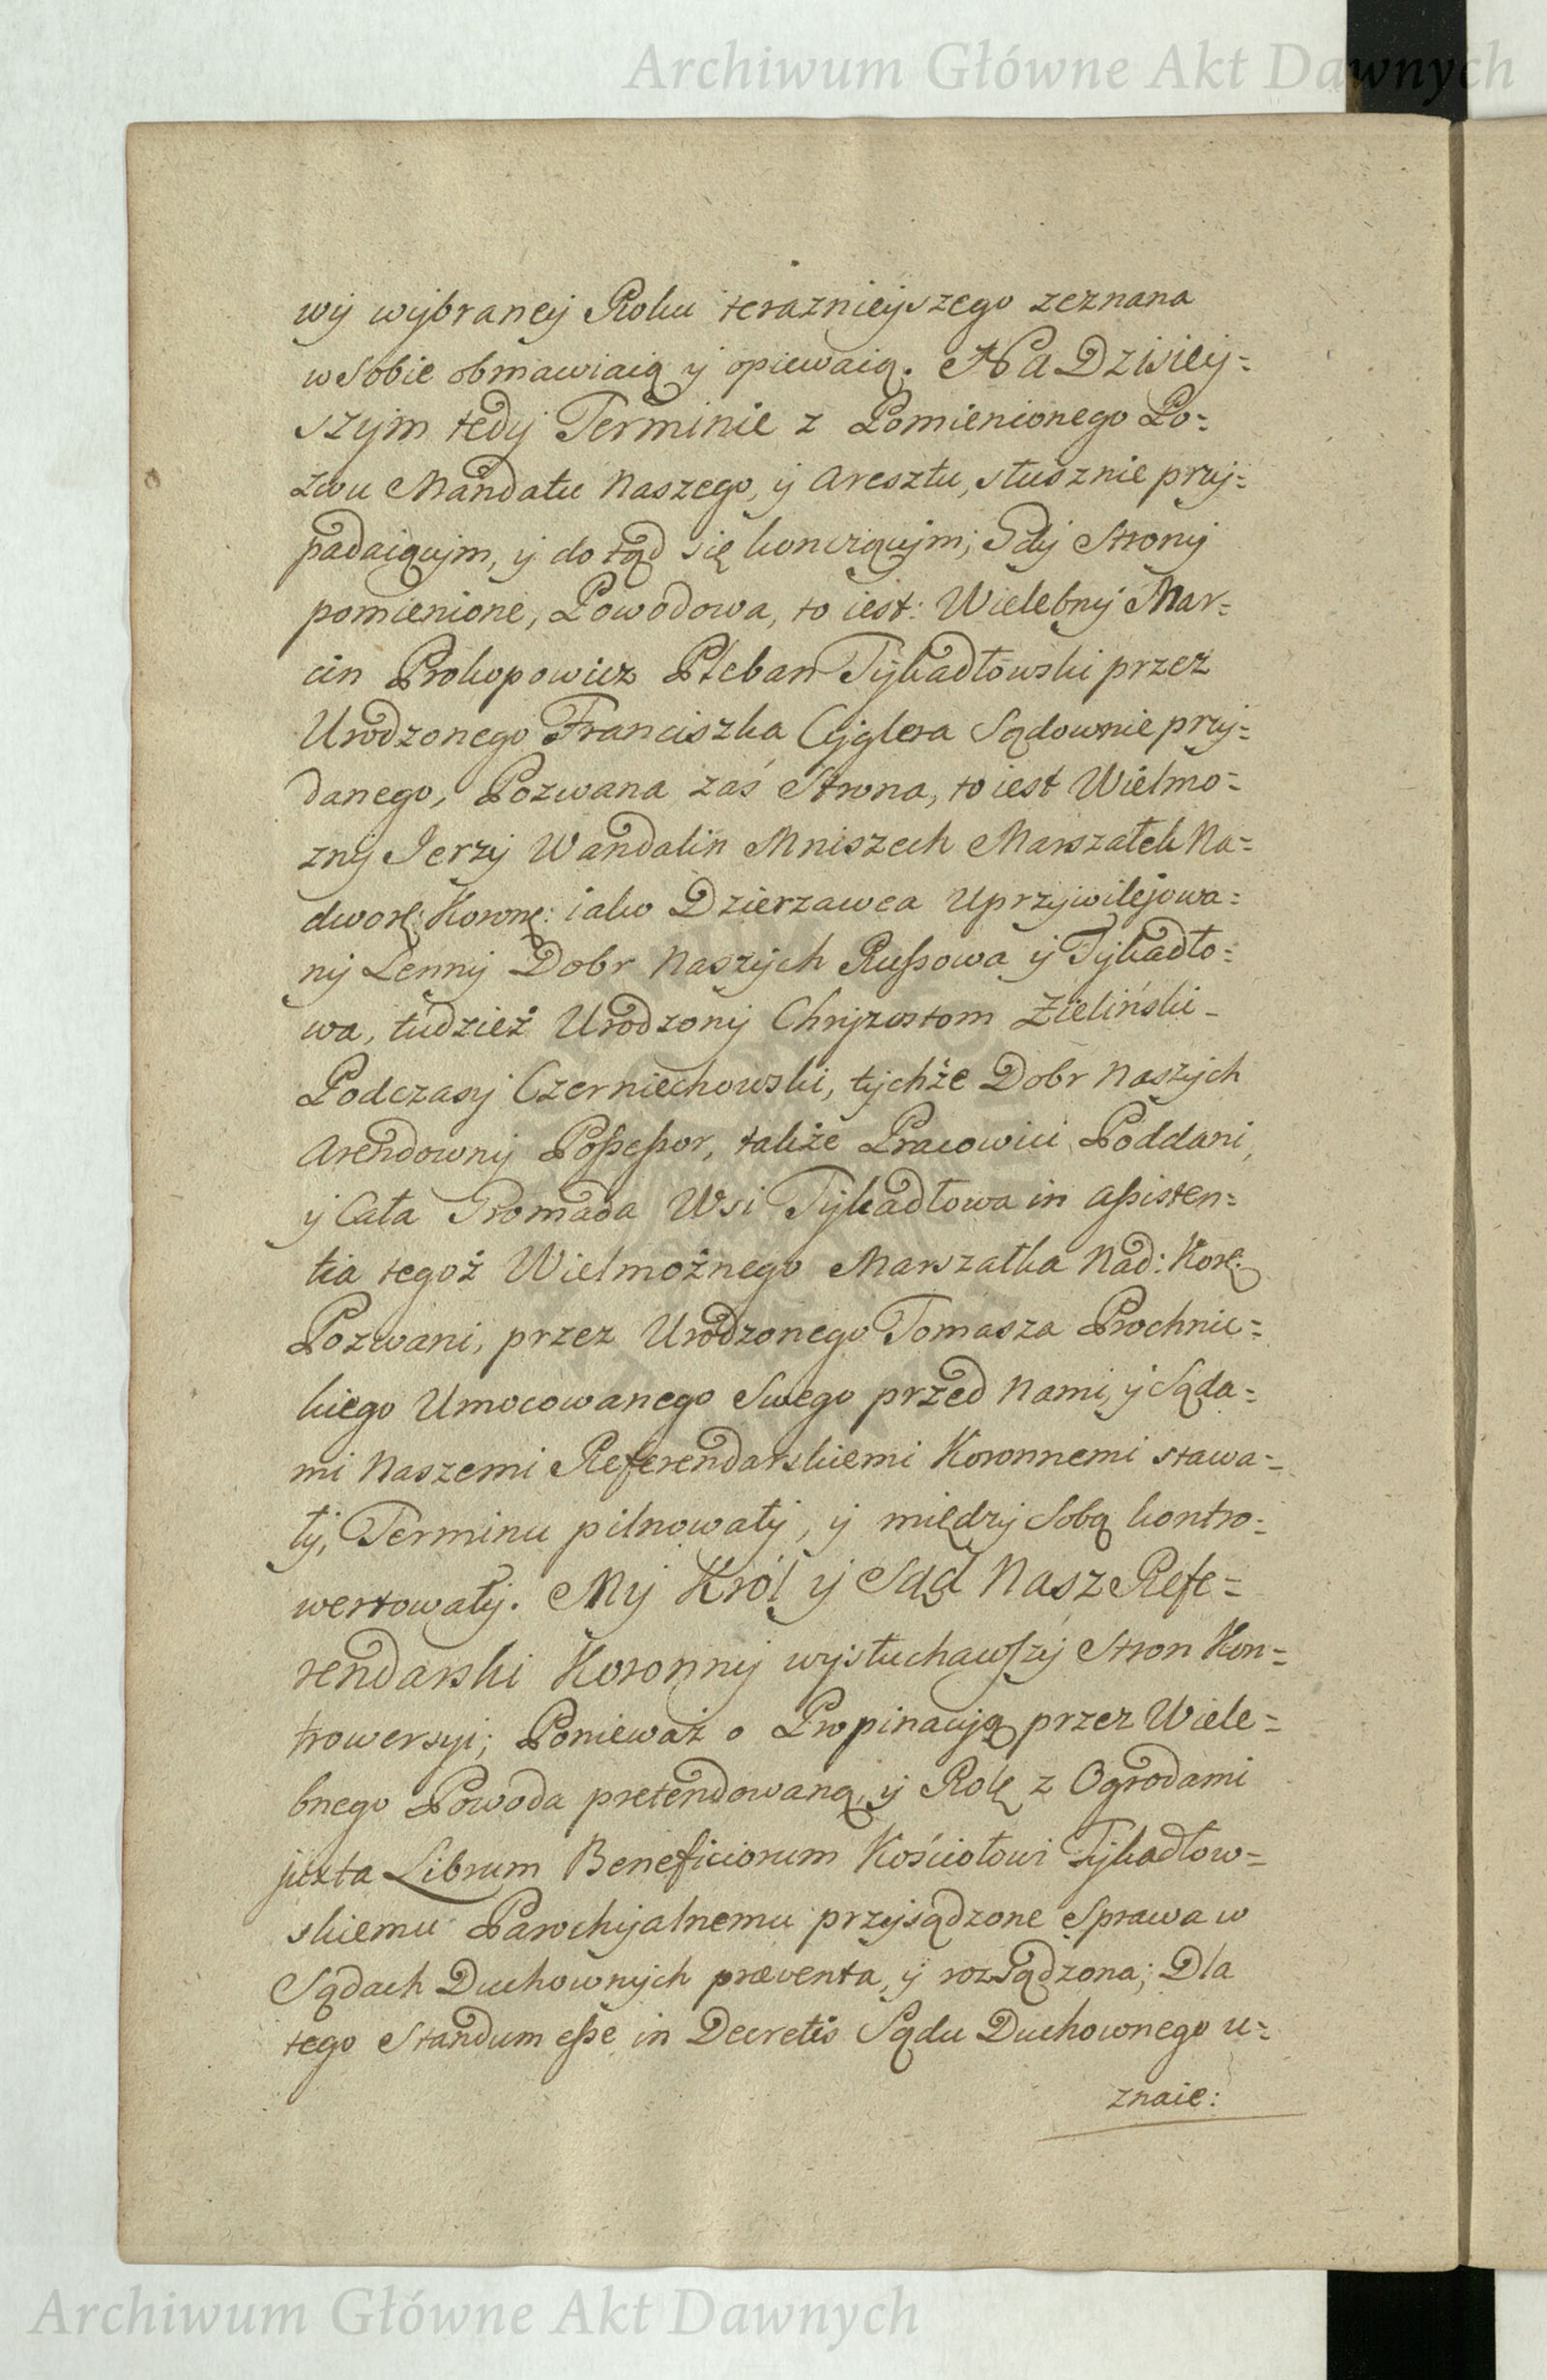 Archiwum Główne Akt Dawnych
wy wybraney Roku teraznieyszego zeznana
w Sobie obmawiaią y opiewaią. Na Dzisiey=
szym tedy Terminie z Pomienionego Po=
zwu Mandatu Naszego, y Aresztu, słusznie przy=
padaiącym, y do tąd się konczącym; Gdy Strony
pomienione, Powodowa, to iest: Wielebny Mar=
cin Prokopowicz Pleban Tykadłowski przez
Urodzonego Franciszka Cyglera Sądownie przy=
danego, Pozwana zaś Strona, to iest Wielmo=
zny Jerzy Wandalin Mniszech Marszałek Na=
dwor: Koronę: iako Dzierzawca Uprzywilejowa=
ny Lenny Dobr Naszych Russowa y Tykadło=
wa, tudzież Urodzony Chryzostom Zieliński
Podczasy Czerniechowski, tychże Dobr Naszych
Arendowny Possessor, także Pracowici Poddani,
y Cała Gromada Wsi Tykadłowa in assisten=
tia tegoż Wielmożnego Marszałka Nad: Kor:
Pozwani, przez Urodzonego Tomasza Prochnic=
kiego Umocowanego Swego przed Nami, y Sąda=
mi Naszemi Referendarskiemi Koronnemi stawa=
ły, Terminu pilnowały, y między Sobą kontro=
wertowały. My Król y Sąd Nasz Refe=
rendarski Koronny wysłuchawszy Stron Kon=
trowersyi; Ponieważ o Propinacyją przez Wiele=
bnego Powoda pretendowaną, y Rolę z Ogrodami
juxta Librum Beneficiorum Kościołowi Tykadłow=
skiemu Parochyalnemu przysądzone Sprawa w
Sądach Duchownych præventa, y rozsądzona; Dla
tego Standum esse in Decretis Sądu Duchownego u=
znaie:
Archiwum Główne Akt Dawnych